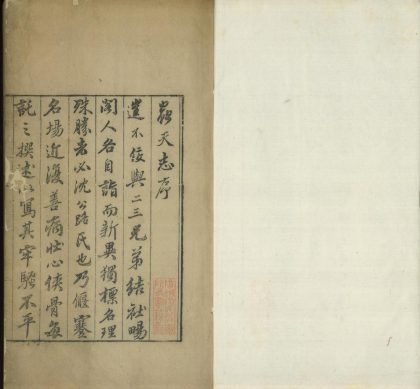 蟲天志序
遑不佞與二三兄弟結社暘
閣人各自詣而新異獨標名理
殊勝者必沈公路氏也乃偃蹇
名場近復善病壯心俠骨每
託之撰述以寫其牢騷不平